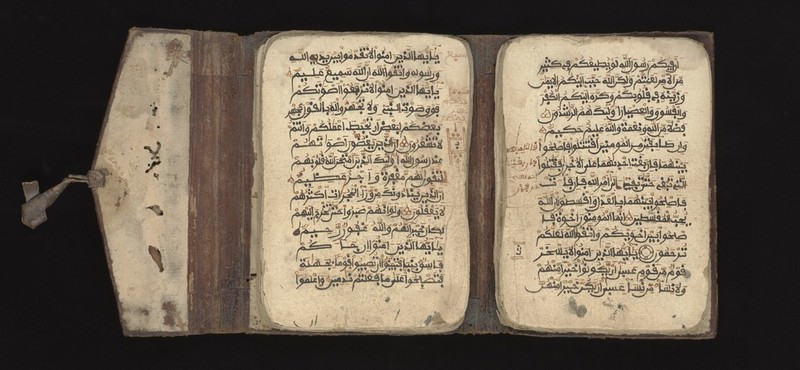 يايها الذين امنوا لا تقدموا بين يدي الله
ورسوله واتقوا الله ان الله سميع عليم
يايها الذين امنوا لا ترفعوا اصوتكم
فوق صوت النبي ولا تجهروا له بالقول كجهر
بعضكم لبعض ان تحبط اعملكم وانتم
لا تشعرون ان الذين يغضون اصوتهم
عند رسول الله اوليك الذين امتحن الله قلوبهم
للتقوى لهم مغفرة واجر عظيم
ان الذين ينادونك من وراء الحجرات اكثرهم
لا يعقلون ولو انهم صبروا حتى تخرج اليهم
لكان خيرا لهم والله غفور رحيم
يايها الذين امنوا ان جاءكم
فاسق بنبا فتبينوا ان تصيبوا قوما بجهلة
فتصبحوا على ما فعلتم ندمين واعلموا
ان فيكم رسول الله لو يطيعكم في كثير
من الامر لعنتم ولكن الله حبب اليكم الايمن
وزينه في قلوبكم وكره اليكم الكفر
والفسوق والعصيان اوليك هم الرشدون
فضلا من الله ونعمة والله عليم حكيم
وان طايفتن من المومنين اقتتلوا فاصلحوا
بينهما فان بغت احديهما على الاخرى فقتلوا
التي تبغي حتى تفيء الى امر الله فان فاءت
فاصلحوا بينهما بالعدل واقسطوا ان الله
يحب المقسطين انما المومنون اخوة فا
صلحوا بين اخويكم واتقوا الله لعلكم
ترحمون يايها الذين امنوا لا يسخر
قوم من قوم عسى ان يكونوا خيرا منهم
ولا نساء من نساء عسى ان يكن خيرا منهن